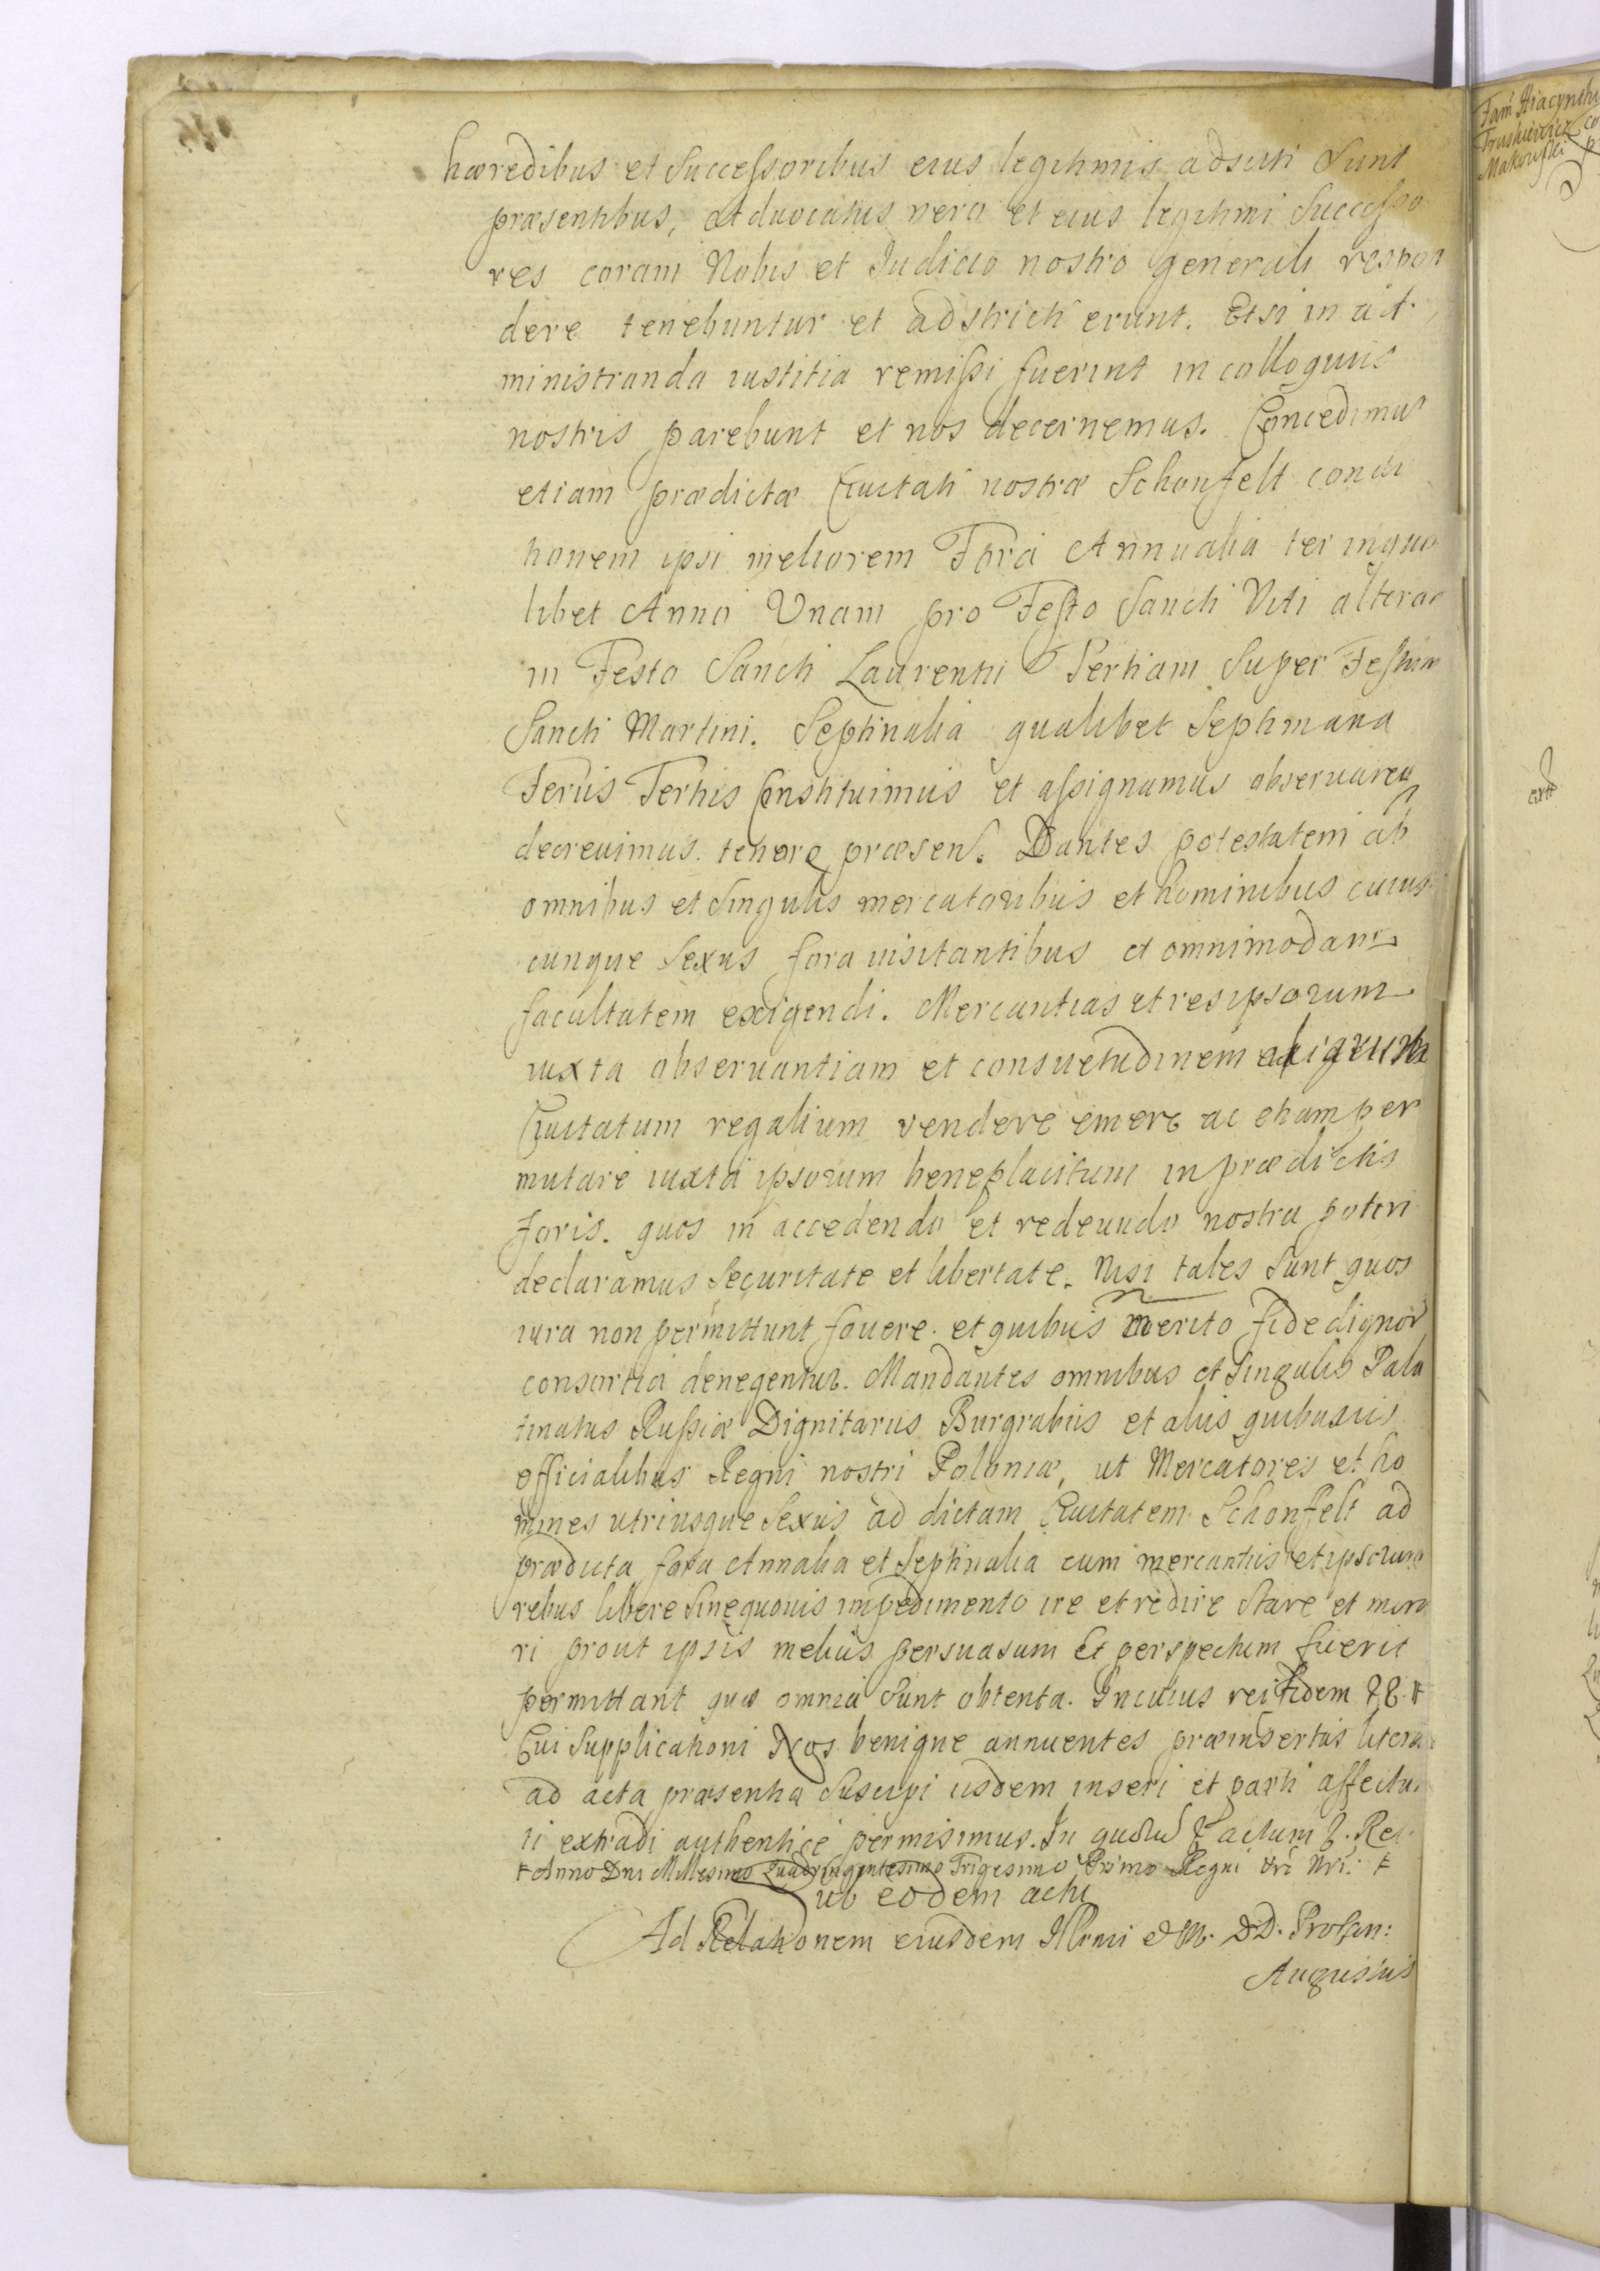 hæredibus et Successoribus eius legitimis adsciti Sunt
præsentibus, Advocatus vero et eius legitimi Successo
res coram Nobis et Iudicio nostro generali respon
dere tenebuntur et adstricti erunt. Etsi in ad
ministranda iustitia remissi fuerint in colloquiis
nostris parebunt et nos decernemus. Concedimus
etiam prædictæ Civitati nostræ Schonfelt condi
tionem ipsi meliorem Fora Annualia ter in quo
libet Anno Unam pro Festo Sancti Viti alteram
in Festo Sancti Laurentii Tertiam Super Festum
Sancti Martini. Septinalia qualibet Septimana
Feriis Tertiis Constituimus et assignamus observarequ
decrevimus tenore præsen. Dantes potestatem ab
omnibus et Singulis mercatoribus et hominibus cuius
cunque Sexus fora visitantibus et omnimodam
facultatem exigendi. Mercantias et res ipsorum
iuxta observantiam et consuetudinem aliarum
Civitatum regalium vendere emere ac etiam per
mutare iuxta ipsorum beneplacitum in prædictis
foris. quos in accedendo et redeundo nostra poteri
declaramus Securitate et libertate. Nisi tales Sunt quos
iura non permittunt fovere et quibus merito fide dignor
consortia denegentur. Mandantes omnibus et Singulis Pala
tinatus Russiæ Dignitariis Burgrabiis et aliis quibusvis
officialibus Regni nostri Poloniæ, ut Mercatores et ho
mines utriusque Sexus ad dictam Civitatem Schonfelt ad
prædicta fora Annalia et Septinalia cum mercantiis et ipsorum
rebus libere Sine quovis impedimento ire et redire Stare et mora
ri prout ipsis melius persuasum et perspectum fuerit
permittant quæ omnia Sunt obtenta. In cuius rei fidem
Cui Supplicationi Nos benigne annuentes præinsertas litera
ad acta præsentia Suscipi iisdem inseri et parti affectan
ti extradi authentice permisimus. In quorum actum Re
Anno Dni Millesimo Quadringentesimo Trigesimo Primo Regni vri Nri
ut eodem actu
Ad Relationem eiusdem Illrmi et M. DD. Prolan:
Augustus
Fam Hiacynthi
Truskiewicz co
Makowski